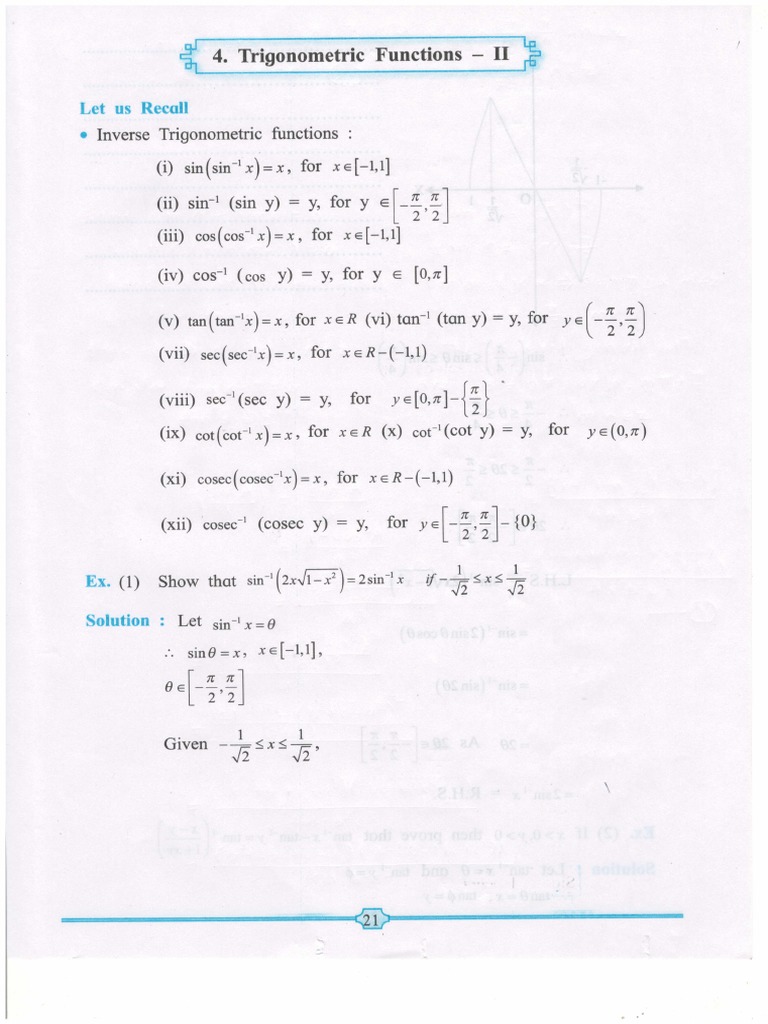 4. Trigonometric Functions – II
Let us Recall
• Inverse Trigonometric functions :
(i) sin(sin⁻¹ x) = x, for x∈[−1,1]
(ii) sin⁻¹ (sin y) = y, for y ∈[−π/2, π/2]
(iii) cos(cos⁻¹ x) = x, for x∈[−1,1]
(iv) cos⁻¹ (cos y) = y, for y ∈ [0,π]
(v) tan(tan⁻¹x) = x, for x∈R (vi) tan⁻¹ (tan y) = y, for y∈(−π/2, π/2)
(vii) sec(sec⁻¹x) = x, for x∈R−(−1,1)
(viii) sec⁻¹(sec y) = y, for y∈[0,π]−{π/2}
(ix) cot(cot⁻¹ x) = x, for x∈R (x) cot⁻¹(cot y) = y, for y∈(0,π)
(xi) cosec(cosec⁻¹x) = x, for x∈R−(−1,1)
(xii) cosec⁻¹ (cosec y) = y, for y∈[−π/2, π/2]−{0}
Ex. (1) Show that sin⁻¹(2x√(1−x²)) = 2sin⁻¹ x if −1/√2 ≤ x ≤ 1/√2
Solution : Let sin⁻¹ x = θ
∴ sinθ = x, x∈[−1,1],
θ∈[−π/2, π/2]
Given −1/√2 ≤ x ≤ 1/√2,
21